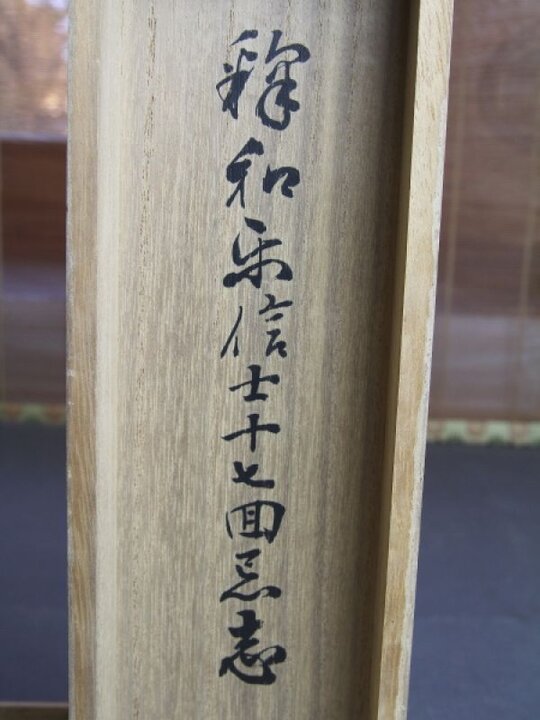 釋和樂信士十七回忌志